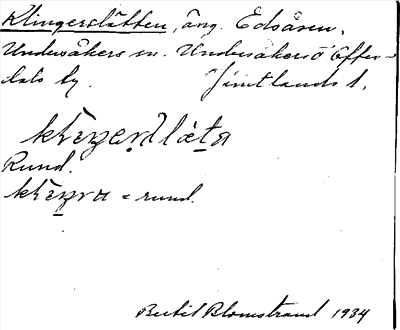 Klingerslätten, äng. Edsåsen,
Undersåkers sn. Undersåkers o Offer-
dals tg. Jämtlands l.
Rund.
= rund.
Bertil Blomstrand 1934